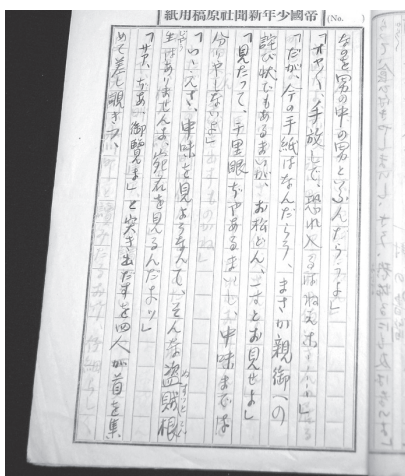 帝國少年新聞社原稿用紙 (No. )
なのを男の中の男といふんだらうよ」
「オヤ〱、手放しで、恐れ入る
「だが、今の手紙はなんだらう、まさか親御への
詫び状でもあるまいが、お松どん、一寸とお見せよ」
「見たって、千里眼ぢやあるまいし中味までは
分りやしないよ」
「いゝえさ、中味を見ようなんて、そんな盗賊根
生はありませんよ、宛名を見るんだよッ」
「サア、ぢあ御覧よ」と突き出たすを四人が首を集
めて差し覗き